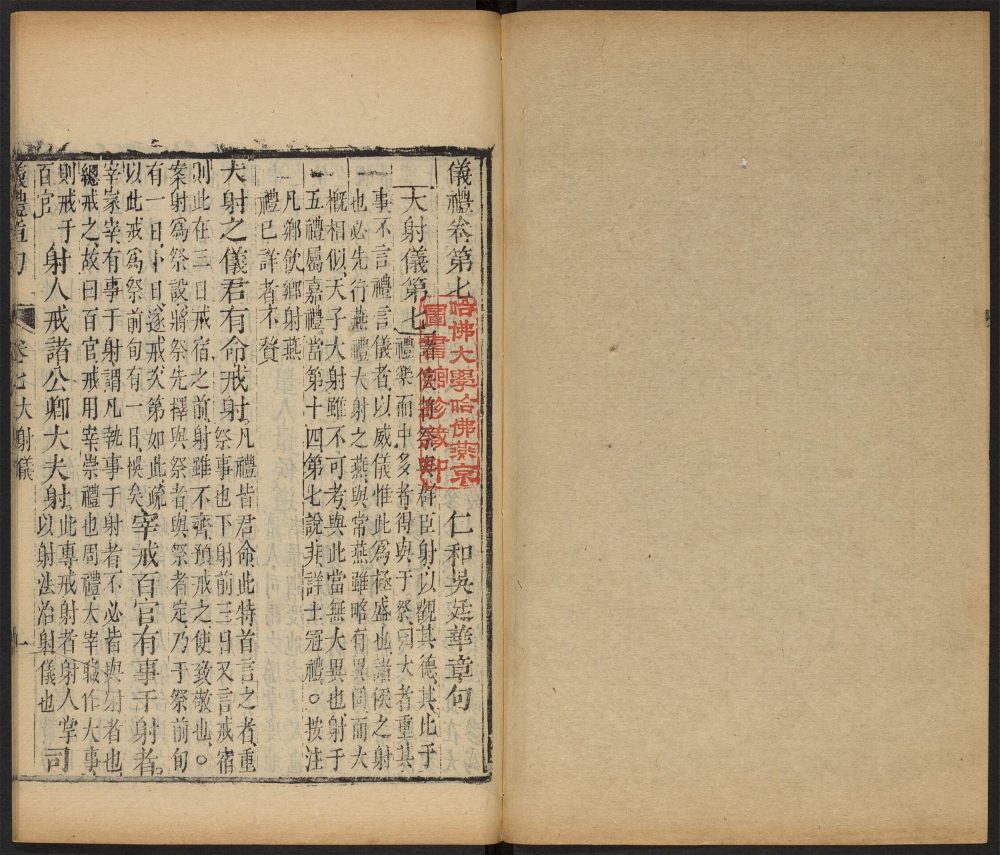 儀禮卷第七　仁和吳廷華章句
大射儀第七
諸侯將祭與群臣射以觀其德其比于
禮樂而中多者得與于祭曰大者重其
事不言禮言儀者以威儀惟此爲極盛也諸侯之射
也必先行燕禮大射之燕與常燕雖略有異同而大
槪相似天子大射雖不可考與此當無大異也射于
五禮屬嘉禮當第十四第七說非詳士冠禮○按注
凡鄉飮鄉射燕
禮已詳者不贅
大射之儀君有命戒射
凡禮皆君命此特首言之者重
祭事也下射前三日又言戒宿
則此在三日戒宿之前射雖不齊預戒之使致敬也○
案射爲祭設將祭先擇與祭者與祭者定乃于祭前旬
有一日卜日遂戒次第如此疏
以此戒爲祭前旬有一日悞矣
宰戒百官有事于射者
宰冢宰有事于射謂凡執事于射者不必皆與射者也
總戒之故曰百官戒用宰崇禮也周禮大宰職作大事
則戒于
百官
射人戒諸公卿大夫射
此專戒射者射人掌
以射法治射儀也
司
儀禮章句　卷七大射儀　一
哈佛大學哈佛燕京
圖書館珍藏印